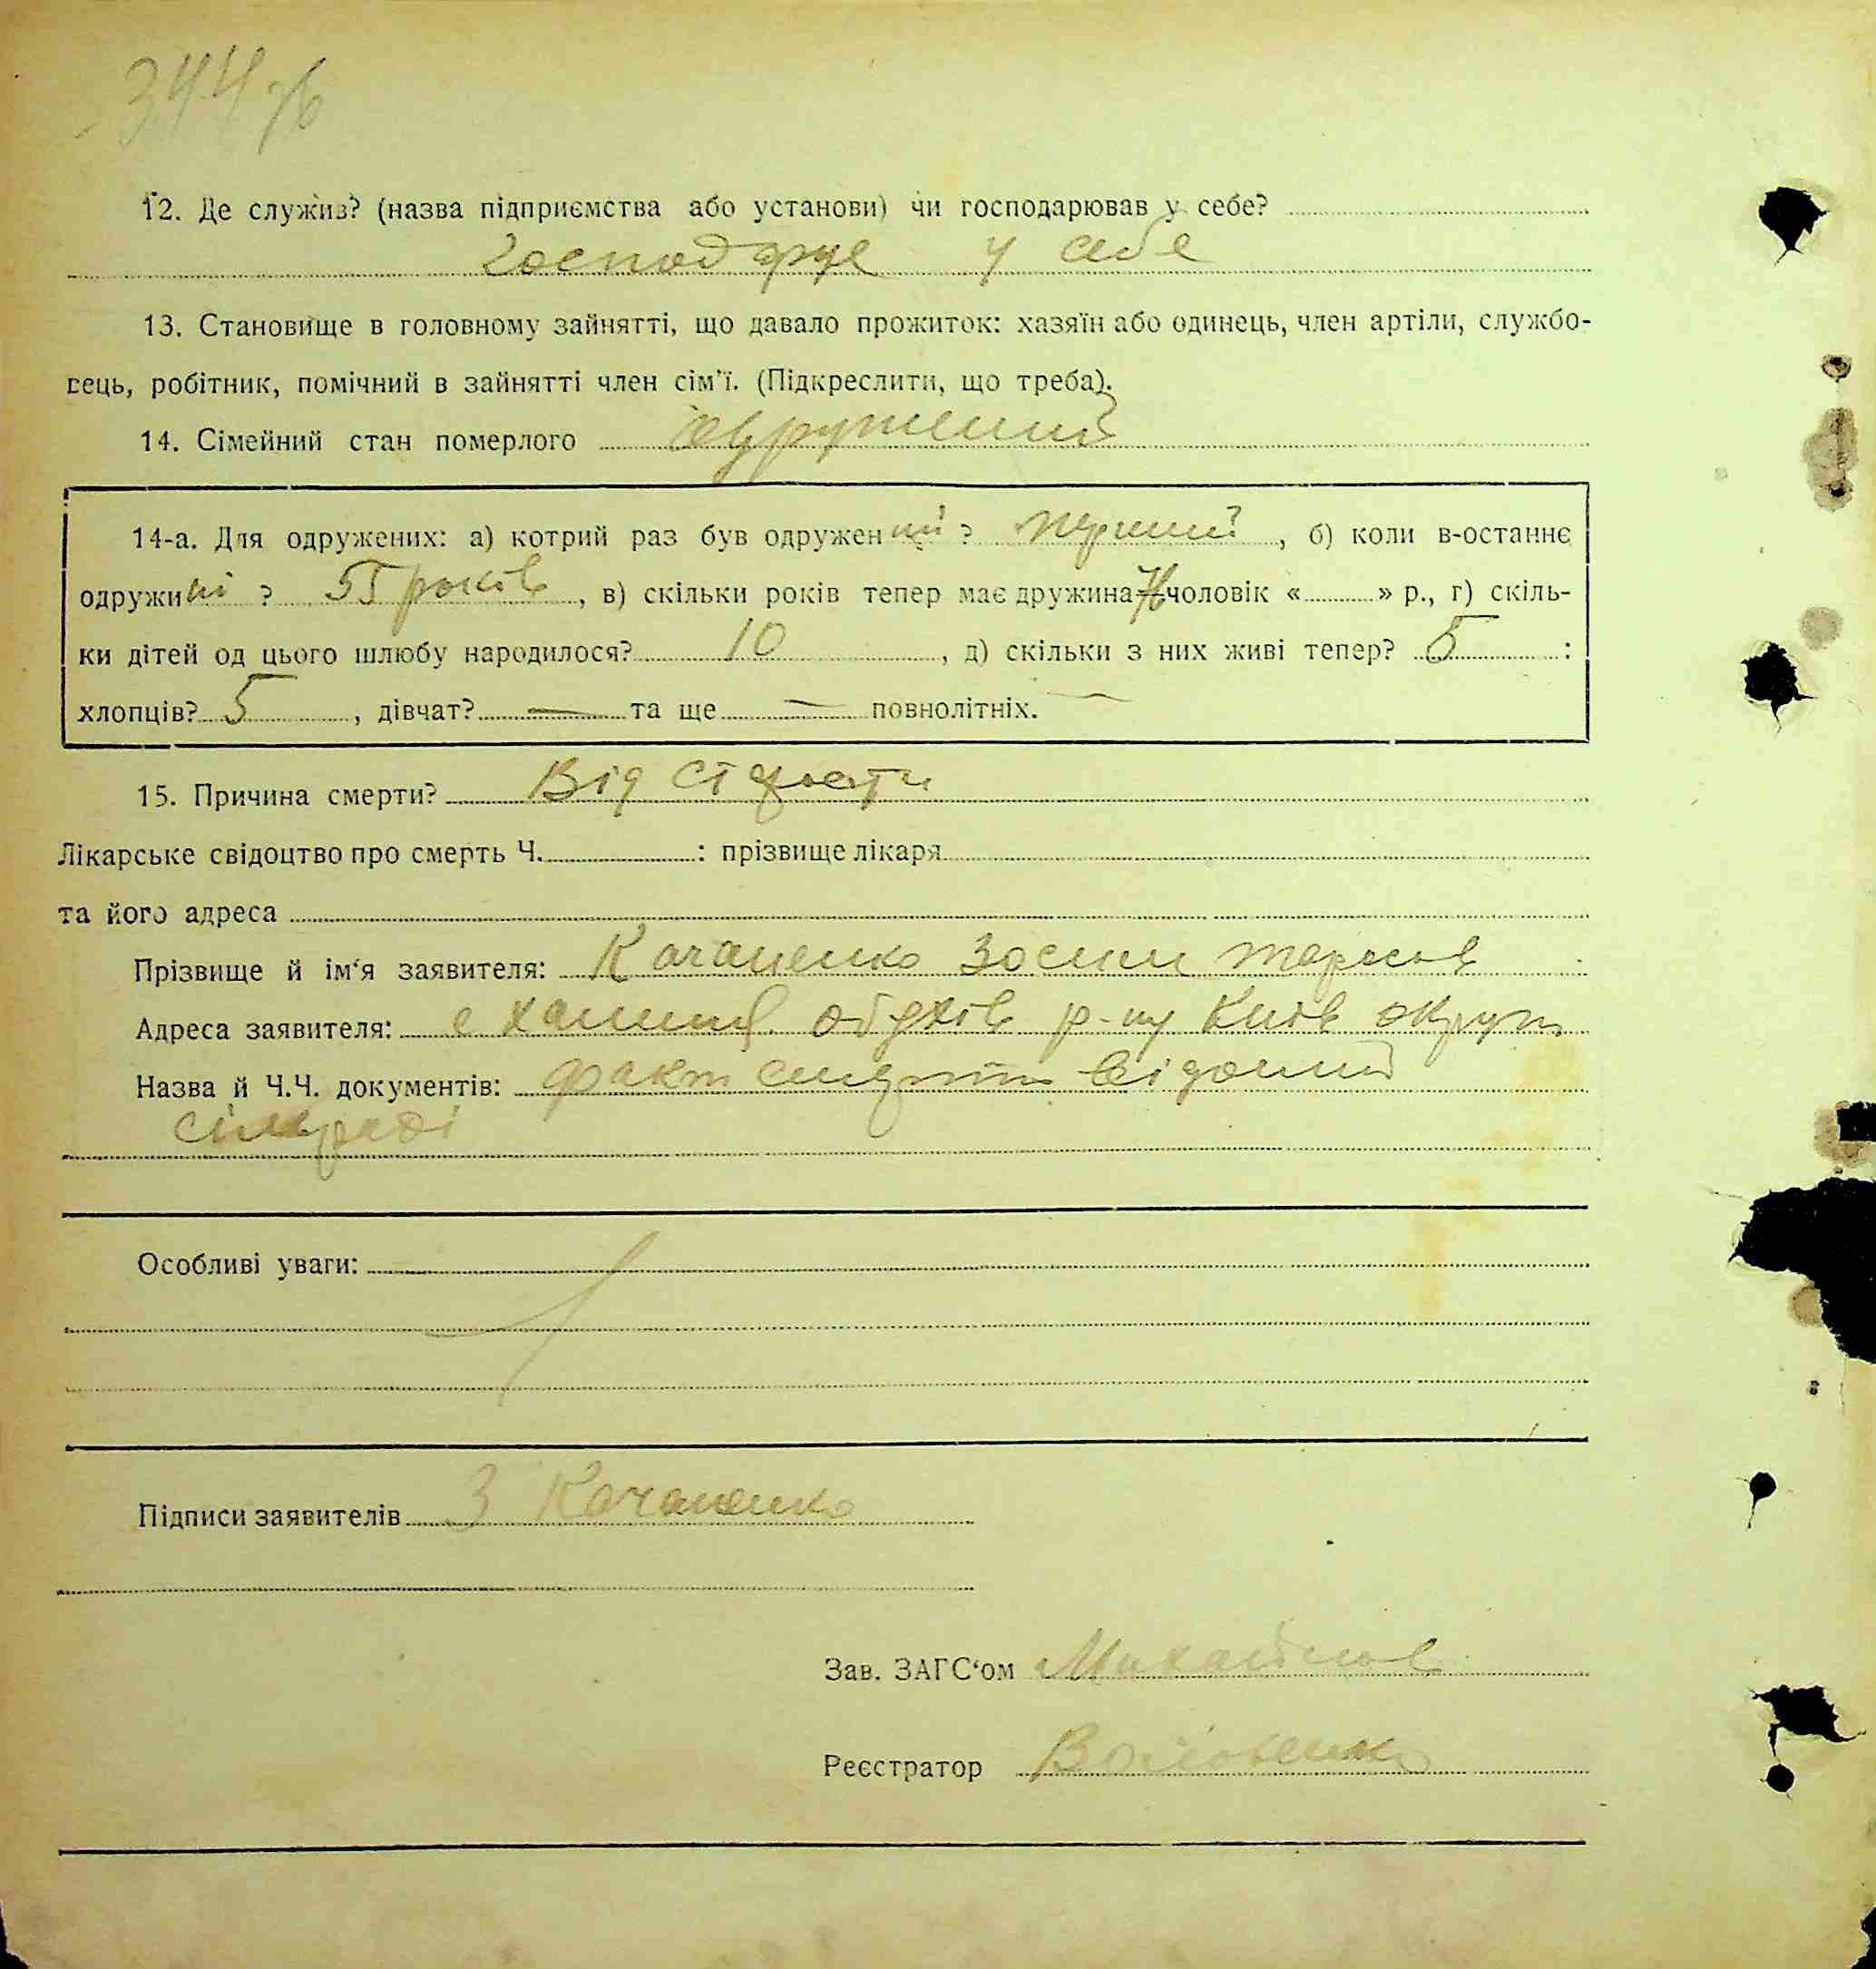 344 зв
12. Де служив? (назва підприємства або установи) чи господарював у себе?
Господарує у себе
13. Становище в головному зайнятті, що давало прожиток: хазяїн або одинець, член артіли, службо-
вець, робітник, помічний в зайнятті член сім'ї. (Підкреслити, що треба).
14. Сімейний стан померлого одружений
14-а. Для одружених: а) котрий раз був одружений? перший, б) коли в-останнє
одружині? 55 років, в) скільки років тепер має дружина 76 чоловік « » р., г) скіль-
ки дітей од цього шлюбу народилося? 10, д) скільки з них живі тепер? 5 :
хлопців? 5, дівчат? — та ще — повнолітніх. —
15. Причина смерти? Від старости
Лікарське свідоцтво про смерть Ч. : прізвище лікаря
та його адреса
Прізвище й ім'я заявителя: Качаненко Зосим Тарасов
Адреса заявителя: с. Обухів р-ну Київ округи
Назва й Ч.Ч. документів: факт смерти відомий
сільраді
Особливі уваги:
Підписи заявителів З Качаненко
Зав. ЗАГС'ом Михайлов
Реєстратор